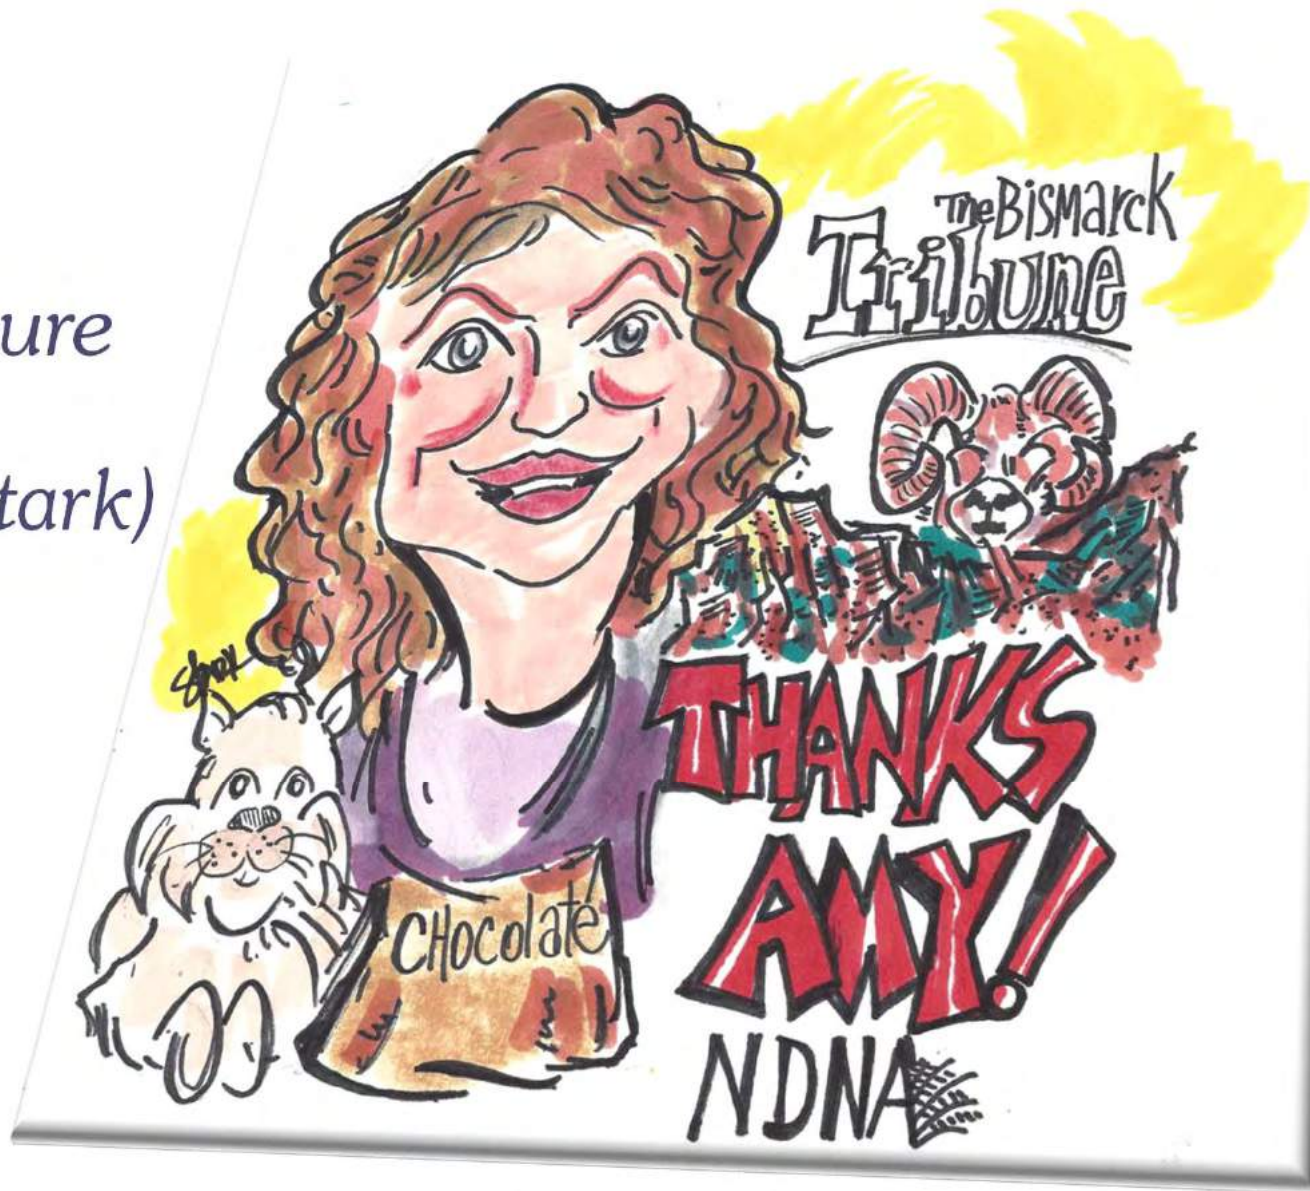 ure
tark)
The Bismarck
Tribune
CHocolate
THANKS
AMY!
NDNA